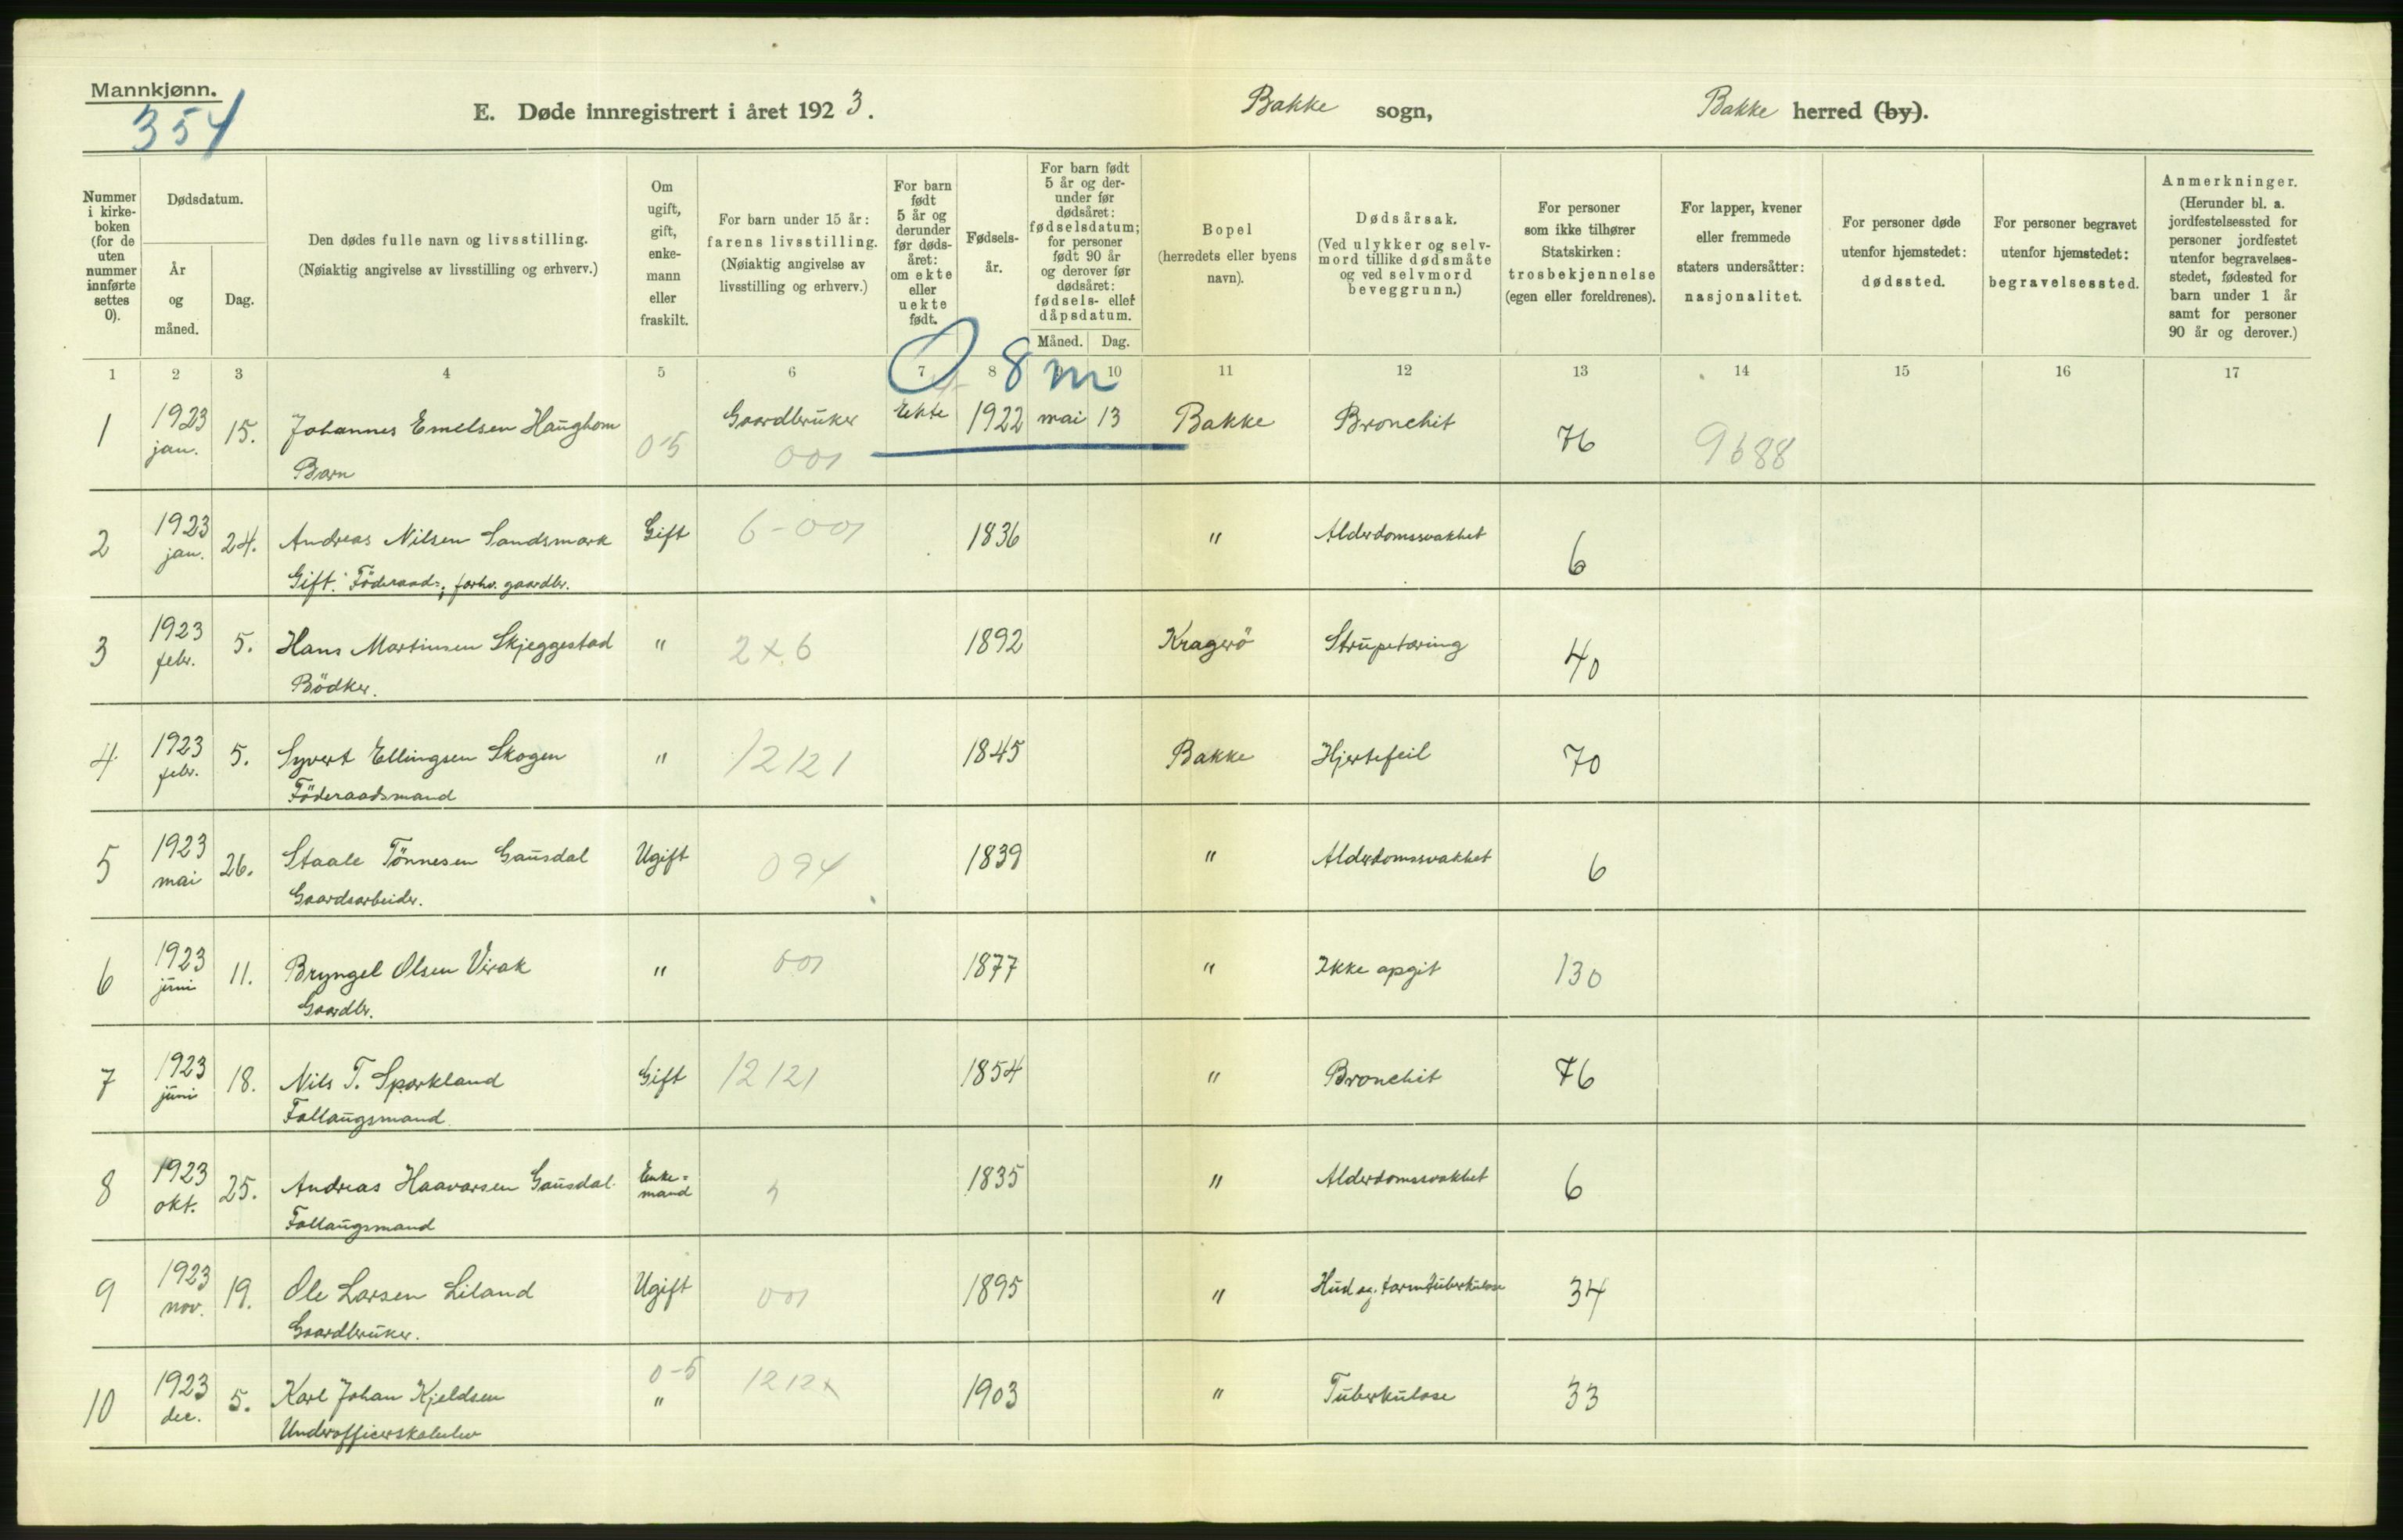 Mannkjønn.
354
E. Døde innregistrert i året 1923. Bakke sogn, Bakke herred (by).
Nummer i kirkeboken (for de uten nummer innførte settes 0).
Dødsdatum.
År og måned.
Dag.
Den dødes fulle navn og livsstilling.
(Nøiaktig angivelse av livsstilling og erhverv.)
Om ugift, gift, enkemann eller fraskilt.
For barn under 15 år: farens livsstilling. (Nøiaktig angivelse av livsstilling og erhverv.)
For barn født 5 år og derunder før dødsåret: om ekte eller uekte født.
Fødselsår.
For barn født 5 år og derunder før dødsåret: fødselsdatum; for personer født 90 år og derover før dødsåret: fødsels- eller dåpsdatum.
Måned. Dag.
Bopel (herredets eller byens navn).
Dødsårsak. (Ved ulykker og selvmord tillike dødsmåte og ved selvmord beveggrunn.)
For personer som ikke tilhører Statskirken: trosbekjennelse (egen eller foreldrenes).
For lapper, kvener eller fremmede staters undersåtter: nasjonalitet.
For personer døde utenfor hjemstedet: dødssted.
For personer begravet utenfor hjemstedet: begravelsessted.
Anmerkninger. (Herunder bl. a. jordfestelsessted for personer jordfestet utenfor begravelsesstedet, fødested for barn under 1 år samt for personer 90 år og derover.)
1 2 3 4 5 6 7 8 9 10 11 12 13 14 15 16 17
0 8 m
1 1923 jan. 15. Johannes Emelsen Haughom Gaardbruker Ekte 1922 mai 13 Bakke Bronchit 76 9688
Barn 05 001
2 1923 jan. 24. Andreas Nilsen Sandsmark Gift 6-001 1836 " Alderdomssvakhet 6
Gift. Föderaad-, forhv. gaardbr.
3 1923 febr. 5. Hans Martinsen Skjeggestad " 2x6 1892 Kragerö Strupetæring 40
Bödker.
4 1923 febr. 5. Syvert Ellingsen Skogen " 12121 1845 Bakke Hjertefeil 70
Föderaadsmand
5 1923 mai 26. Staale Tönnesen Gausdal Ugift 094 1839 " Alderdomssvakhet 6
Gaardsarbeider.
6 1923 juni 11. Bryngel Olsen Virak " 001 1877 " Ikke opgit 130
Gaardbr.
7 1923 juni 18. Nils T. Sparkland Gift 12121 1854 " Bronchit 76
Follaugsmand
8 1923 okt. 25. Andreas Haavarsen Gausdal Enkemand 1835 " Alderdomssvakhet 6
Follaugsmand
9 1923 nov. 19. Ole Larsen Liland Ugift 001 1895 " Hud og tarmtuberkulose 34
Gaardbruker.
10 1923 dec. 5. Karl Johan Kjeldsen 0-5 " 1212x 1903 " Tuberkulose 33
Underofficerskoleelev